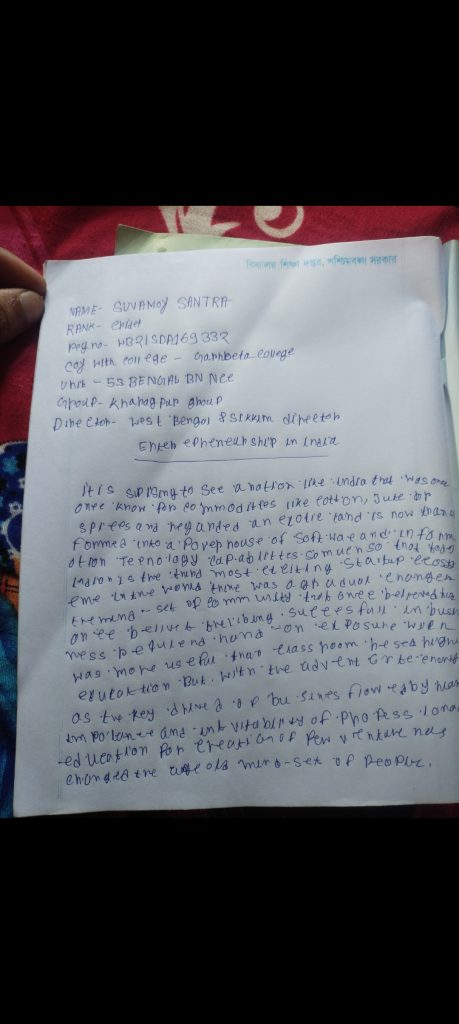 বিদ্যালয় শিক্ষা দপ্তর, পশ্চিমবঙ্গ সরকার
NAME- SUVAMOY SANTRA
RANK- Cadet
Reg no- WB21SDA169332
Coy with college - Garhbeta College
Unit - 53 BENGAL BN NCC
Group- Kharagpur group
Director- West Bengal & Sikkim director
Enterepheneurship in India
It is to see a nation like India that was once
once know for commodities like cotton, Jute or
spices and regarded an exotic land is now trans
formed into a Powerhouse of Software and inform
ation so that today
India is the third most exciting startup ecosy
eme in the world there was a gradual change
the mind-set of community that once believed
once successful in busi
ness required hand-on exposure
was more useful than class room based higher
education But. with the advent
as the key of flowed by
importance and of
education for creation of new venture has
changed the age old mind-set of People.